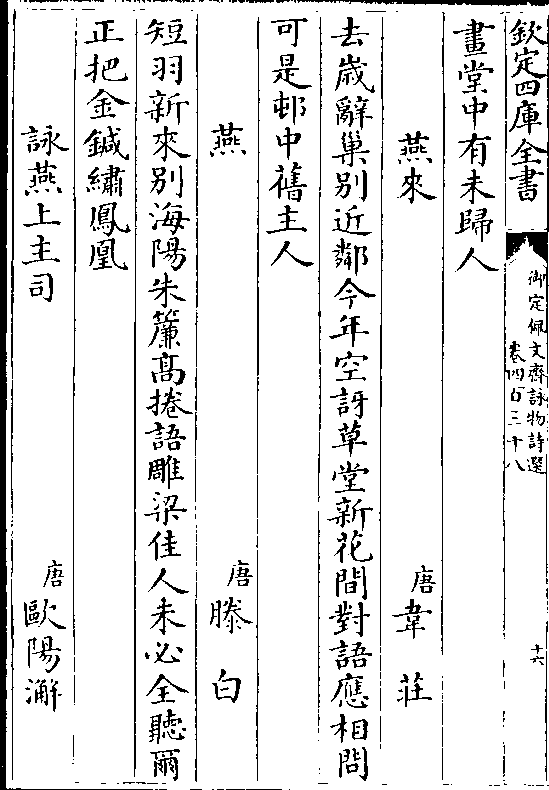 欽定四庫全書
御定佩文齋詠物詩選
卷四百三十八
十六
畫堂中有未歸人
燕來
唐
韋莊
去歲辭巢別近鄰今年空訝草堂新花間對語應相問
可是邨中舊主人
燕
唐
滕白
短羽新來別海陽朱簾髙捲語雕梁佳人未必全聽爾
正把金鍼繡鳳凰
詠燕上主司
唐
歐陽澥